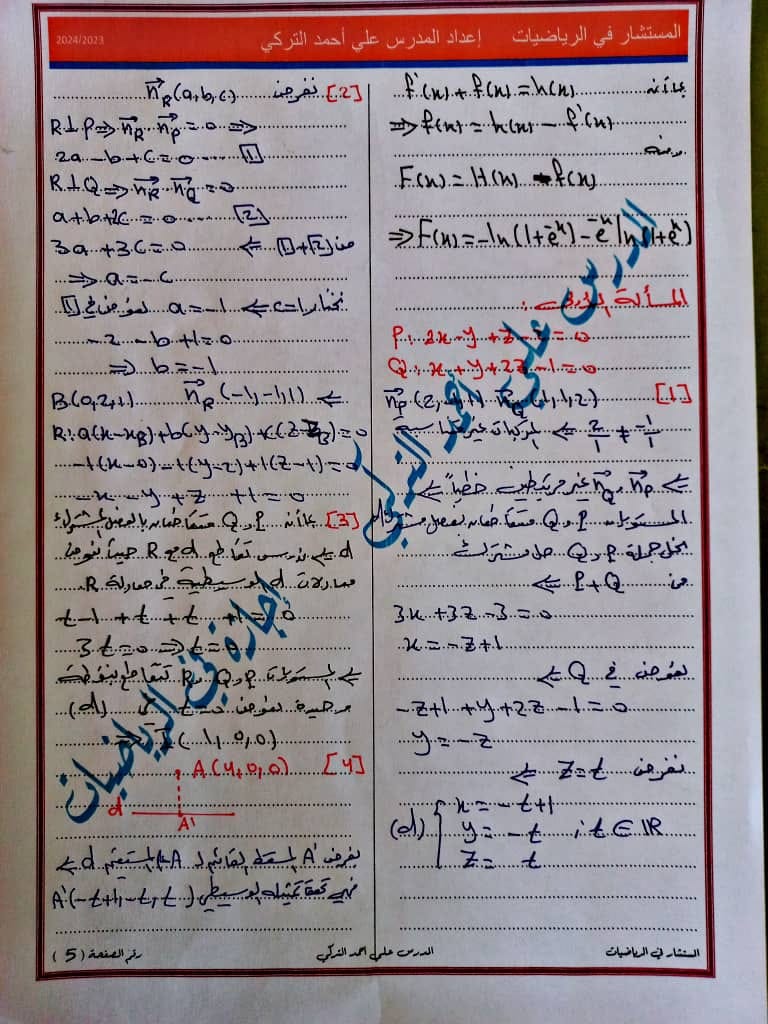 المستشار في الرياضيات إعداد المدرس علي أحمد التركي 2024/2023
بما أنه f'(x) + f(x) = h(x)
⇒ f(x) = h(x) - f'(x)
ومنه
F(x) = H(x) - f(x)
⇒ F(x) = -ln(1+e⁻ˣ) - e⁻ˣ ln(1+eˣ)
المسألة الأولى:
P: 2x - y + z - 2 = 0
Q: x + y + 2z - 1 = 0
[1] n⃗P(2,-1,1) n⃗Q(1,1,2)
2/1 ≠ -1/1 ⇐ المركبات غير متناسبة
⇐ n⃗P و n⃗Q غير مرتبطين خطياً ⇐
المستويان P و Q متقاطعان بفصل مشترك d
لحل جملة P و Q حل مشترك
من P+Q ⇐
3x + 3z - 3 = 0
x = -z + 1
نعوض في Q ⇐
-z + 1 + y + 2z - 1 = 0
y = -z
نفرض z = t ⇐
(d) { x = -t+1
y = -t ; t ∈ ℝ
z = t
[2] نفرض n⃗R(a,b,c)
R⊥P ⇒ n⃗R . n⃗P = 0 ⇒
2a - b + c = 0 ... [1]
R⊥Q ⇒ n⃗R . n⃗Q = 0
a + b + 2c = 0 ... [2]
من [1]+[2] ⇐ 3a + 3c = 0
⇒ a = -c
نختار c=1 ⇐ a = -1 نعوض في [1]
-2 - b + 1 = 0
⇒ b = -1
⇐ n⃗R(-1,-1,1) B(0,2,1)
R: a(x-xB) + b(y-yB) + c(z-zB) = 0
-1(x-0) - 1(y-2) + 1(z-1) = 0
-x - y + z + 1 = 0
[3] بما أنه P و Q متقاطعان بالفصل المشترك
d ⇐ ندرس تقاطع d مع R حيث نعوض
معادلات d الوسيطية في معادلة R
t - 1 + t + t + 1 = 0
3t = 0 ⇒ t = 0
⇐ المستويات P و Q و R تتقاطع بنقطة
وحيدة نعوض t في (d)
(1,0,0)
[4] A(4,0,0)
d
A'
نفرض A' المسقط القائم لـ A على المستقيم d ⇐
فهي تحقق تمثيله الوسيطي A'(-t+1,-t,t)
المستشار في الرياضيات المدرس علي أحمد التركي رقم الصفحة (5)
المدرس علي أحمد التركي
إجازة في الرياضيات